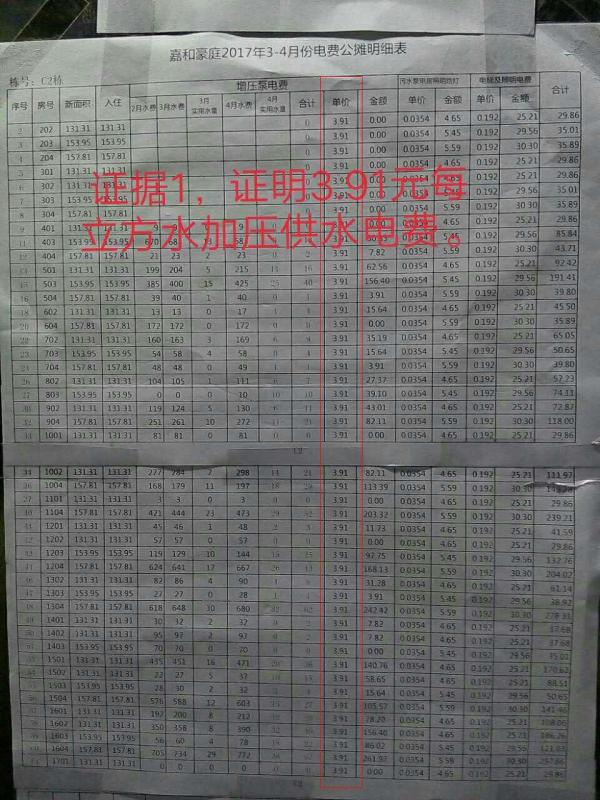 嘉和豪庭2017年3-4月份电费公摊明细表
栋号：C2栋
增压泵电费 污水泵电房照明路灯 电梯及照明电费
序号 房号 新面积 入住 2月水费 3月水费 3月实用水量 4月水费 4月实用水量 合计 单价 金额 单价 金额 单价 金额 合计
2 202 131.31 131.31 0 3.91 0.00 0.0354 4.65 0.192 25.21 29.86
3 203 153.95 153.95 0 3.91 0.00 0.0354 5.45 0.192 29.56 35.01
4 204 157.81 157.81 0 3.91 0.00 0.0354 5.59 0.192 30.30 35.89
5 301 131.31 131.31 3.91 0.00 0.0354 4.65 0.192 25.21 29.86
6 302 131.31 131.31 3.91 0.0354 4.65 0.192 25.21 29.86
7 303 153.95 153.95 3.91 0.0354 5.45 0.192 29.56 35.01
8 304 157.81 157.81 3.91 0.0354 5.59 0.192 30.30 35.89
证据1，证明3.91元每
立方水加压供水电费。
9 401 131.31 131.31 3.91 0.0354 4.65 0.192 25.21 29.86
11 403 153.95 153.95 3.91 0.0354 5.45 0.192 29.56 85.84
12 404 157.81 157.81 21 23 2 23 0 2 3.91 7.82 0.0354 5.59 0.192 30.30 43.71
501 131.31 131.31 199 204 5 215 16 3.91 62.56 0.0354 4.65 0.192 25.21 92.42
503 153.95 153.95 385 400 15 425 25 40 3.91 156.40 0.0354 5.45 0.192 29.56 191.41
504 157.81 157.81 39 40 1 40 0 1 3.91 3.91 0.0354 5.59 0.192 30.30 39.80
18 602 131.31 131.31 13 13 0 17 4 4 3.91 15.64 0.0354 4.65 0.192 25.21 45.50
20 604 157.81 157.81 172 172 0 172 0 0 3.91 0.00 0.0354 5.59 0.192 30.30 35.89
22 702 131.31 131.31 160 163 3 169 9 3.91 35.19 0.0354 4.65 0.192 25.21 65.05
23 703 153.95 153.95 54 58 4 58 0 4 3.91 15.64 0.0354 5.45 0.192 29.56 50.65
24 704 157.81 157.81 48 48 0 49 1 1 3.91 3.91 0.0354 5.59 0.192 30.30 39.80
26 802 131.31 131.31 104 105 1 111 7 3.91 27.37 0.0354 4.65 0.192 25.21 57.23
27 803 153.95 153.95 0 0 0 10 10 10 3.91 39.10 0.0354 5.45 0.192 29.56 74.11
902 131.31 131.31 119 124 5 130 6 3.91 43.01 0.0354 4.65 0.192 25.21 72.87
904 157.81 157.81 251 261 10 272 11 21 3.91 82.11 0.0354 5.59 0.192 30.30 118.00
1001 131.31 131.31 81 81 0 81 0 0 3.91 0.00 0.0354 4.65 0.192 25.21 29.86
34 1002 131.31 131.31 277 284 298 14 21 3.91 82.11 0.0354 4.65 0.192 25.21 111.97
36 1004 157.81 157.81 168 179 11 197 18 29 3.91 113.39 0.0354 5.59 0.192 30.30
37 1101 131.31 131.31 3 3 0 3 0 3.91 0.00 0.0354 4.65 0.192 25.21 29.86
40 1104 157.81 157.81 421 444 23 473 29 52 3.91 203.32 0.0354 5.59 0.192 30.30 239.21
41 1201 131.31 131.31 45 46 1 48 2 3 3.91 11.73 0.0354 4.65 0.192 25.21 41.59
1202 131.31 131.31 57 57 0 57 0 0 3.91 0.00 0.0354 4.65 0.192 25.21 29.86
1203 153.95 153.95 119 129 10 144 15 25 3.91 97.75 0.0354 5.45 0.192 29.56 132.76
1204 157.81 157.81 624 641 17 667 26 43 3.91 168.13 0.0354 5.59 0.192 30.30 204.02
1302 131.31 131.31 82 86 4 90 3.91 31.28 0.0354 4.65 0.192 25.21 61.14
1303 153.95 153.95 27 27 0 28 1 3.91 3.91 0.0354 5.45 0.192 29.56 38.92
1304 157.81 157.81 618 648 30 680 32 62 3.91 242.42 0.0354 5.59 0.192 30.30 278.31
1401 131.31 131.31 30 32 2 32 0 2 3.91 7.82 0.0354 4.65 0.192 25.21 37.68
1402 131.31 131.31 95 97 2 97 0 2 3.91 7.82 0.0354 4.65 0.192 25.21 37.68
1403 153.95 153.95 70 70 0 70 0 0 3.91 0.00 0.0354 5.45 0.192 29.56 35.01
1501 131.31 131.31 435 451 16 471 20 36 3.91 140.76 0.0354 4.65 0.192 25.21 170.62
1502 131.31 131.31 22 27 5 37 10 15 3.91 58.65 0.0354 4.65 0.192 25.21 88.51
1503 153.95 153.95 28 30 2 32 3.91 15.64 0.0354 5.45 0.192 29.56 50.65
1504 157.81 157.81 576 588 12 603 27 3.91 105.57 0.0354 5.59 0.192 30.30
1601 131.31 131.31 192 200 8 212 20 3.91 78.20 0.0354 4.65 0.192 25.21 108.06
1602 131.31 131.31 350 358 8 390 32 40 3.91 156.40 0.0354 4.65 0.192 25.21 186.26
1603 153.95 153.95 56 60 4 78 22 3.91 86.02 0.0354 5.45 0.192 29.56
1604 157.81 157.81 705 734 29 772 38 67 3.91 261.97 0.0354 5.59 0.192 30.30
1701 131.31 131.31 0 0 0 3.91 0.00 0.0354 4.65 0.192 25.21 29.86